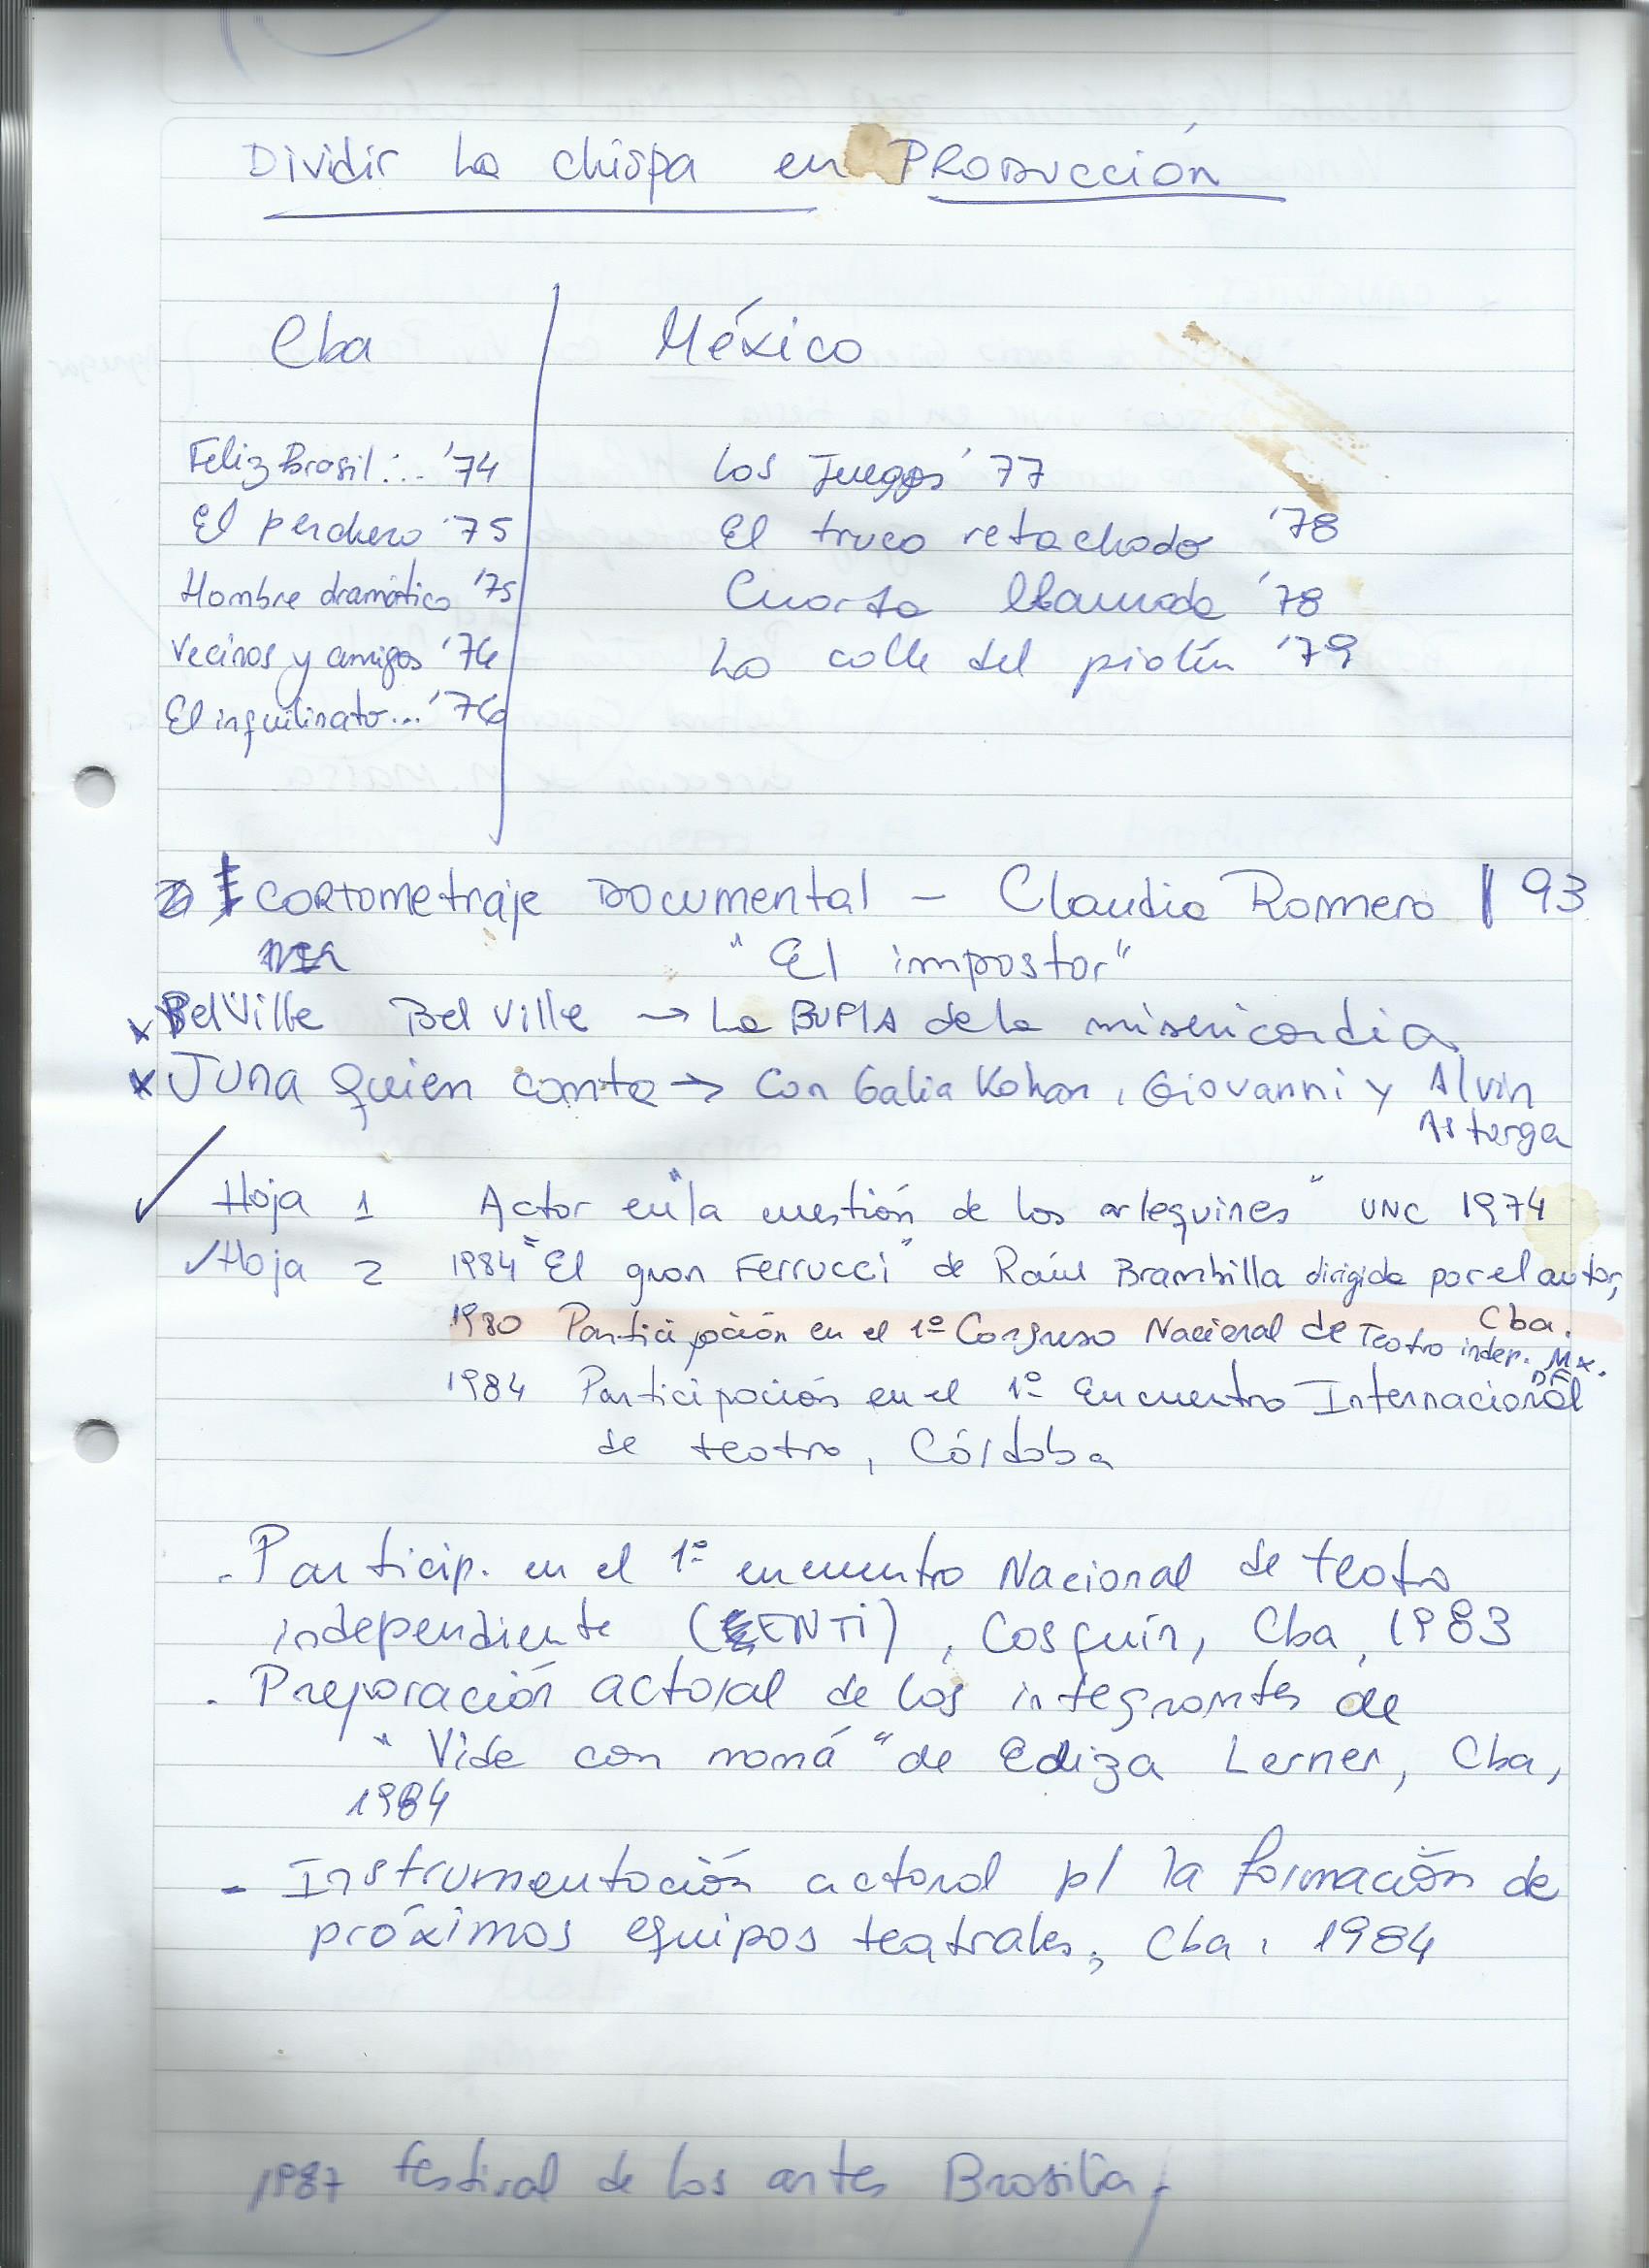 Dividir La chispa en PRODUCCIÓN
Cba México
Feliz Brasil... '74 Los Juegos '77
El perchero '75 El truco retachado '78
Hombre dramático '75 Cuarta llamada '78
Vecinos y amigos '76 La calle del piolín '79
El inquilinato... '76
CORTOmetraje DOcumental – Claudia Romero 93
"El impostor"
x BelVille Bel Ville → La BUPIA de la misericordia
x JUNA quien canta → Con Galia Kohan, Giovanni y Alvin
Asturga
✓ Hoja 1 Actor en "la cuestión de los arlequines" UNC 1974
✓ Hoja 2 1984 "El gran Ferrucci" de Raúl Brambilla dirigida por el autor,
Cba.
1980 Participación en el 1º Congreso Nacional de Teatro indep. Mx.
DF
1984 Participación en el 1º Encuentro Internacional
de teatro, Córdoba
- Particip. en el 1º encuentro Nacional de teatro
independiente (ENTI), Cosquín, Cba, 1983
- Preparación actoral de los integrantes de
"Vide con mamá" de Ediza Lerner, Cba,
1984
- Instrumentación actoral p/ la formación de
próximos equipos teatrales, Cba, 1984
1987 festival de los artes Brasilia